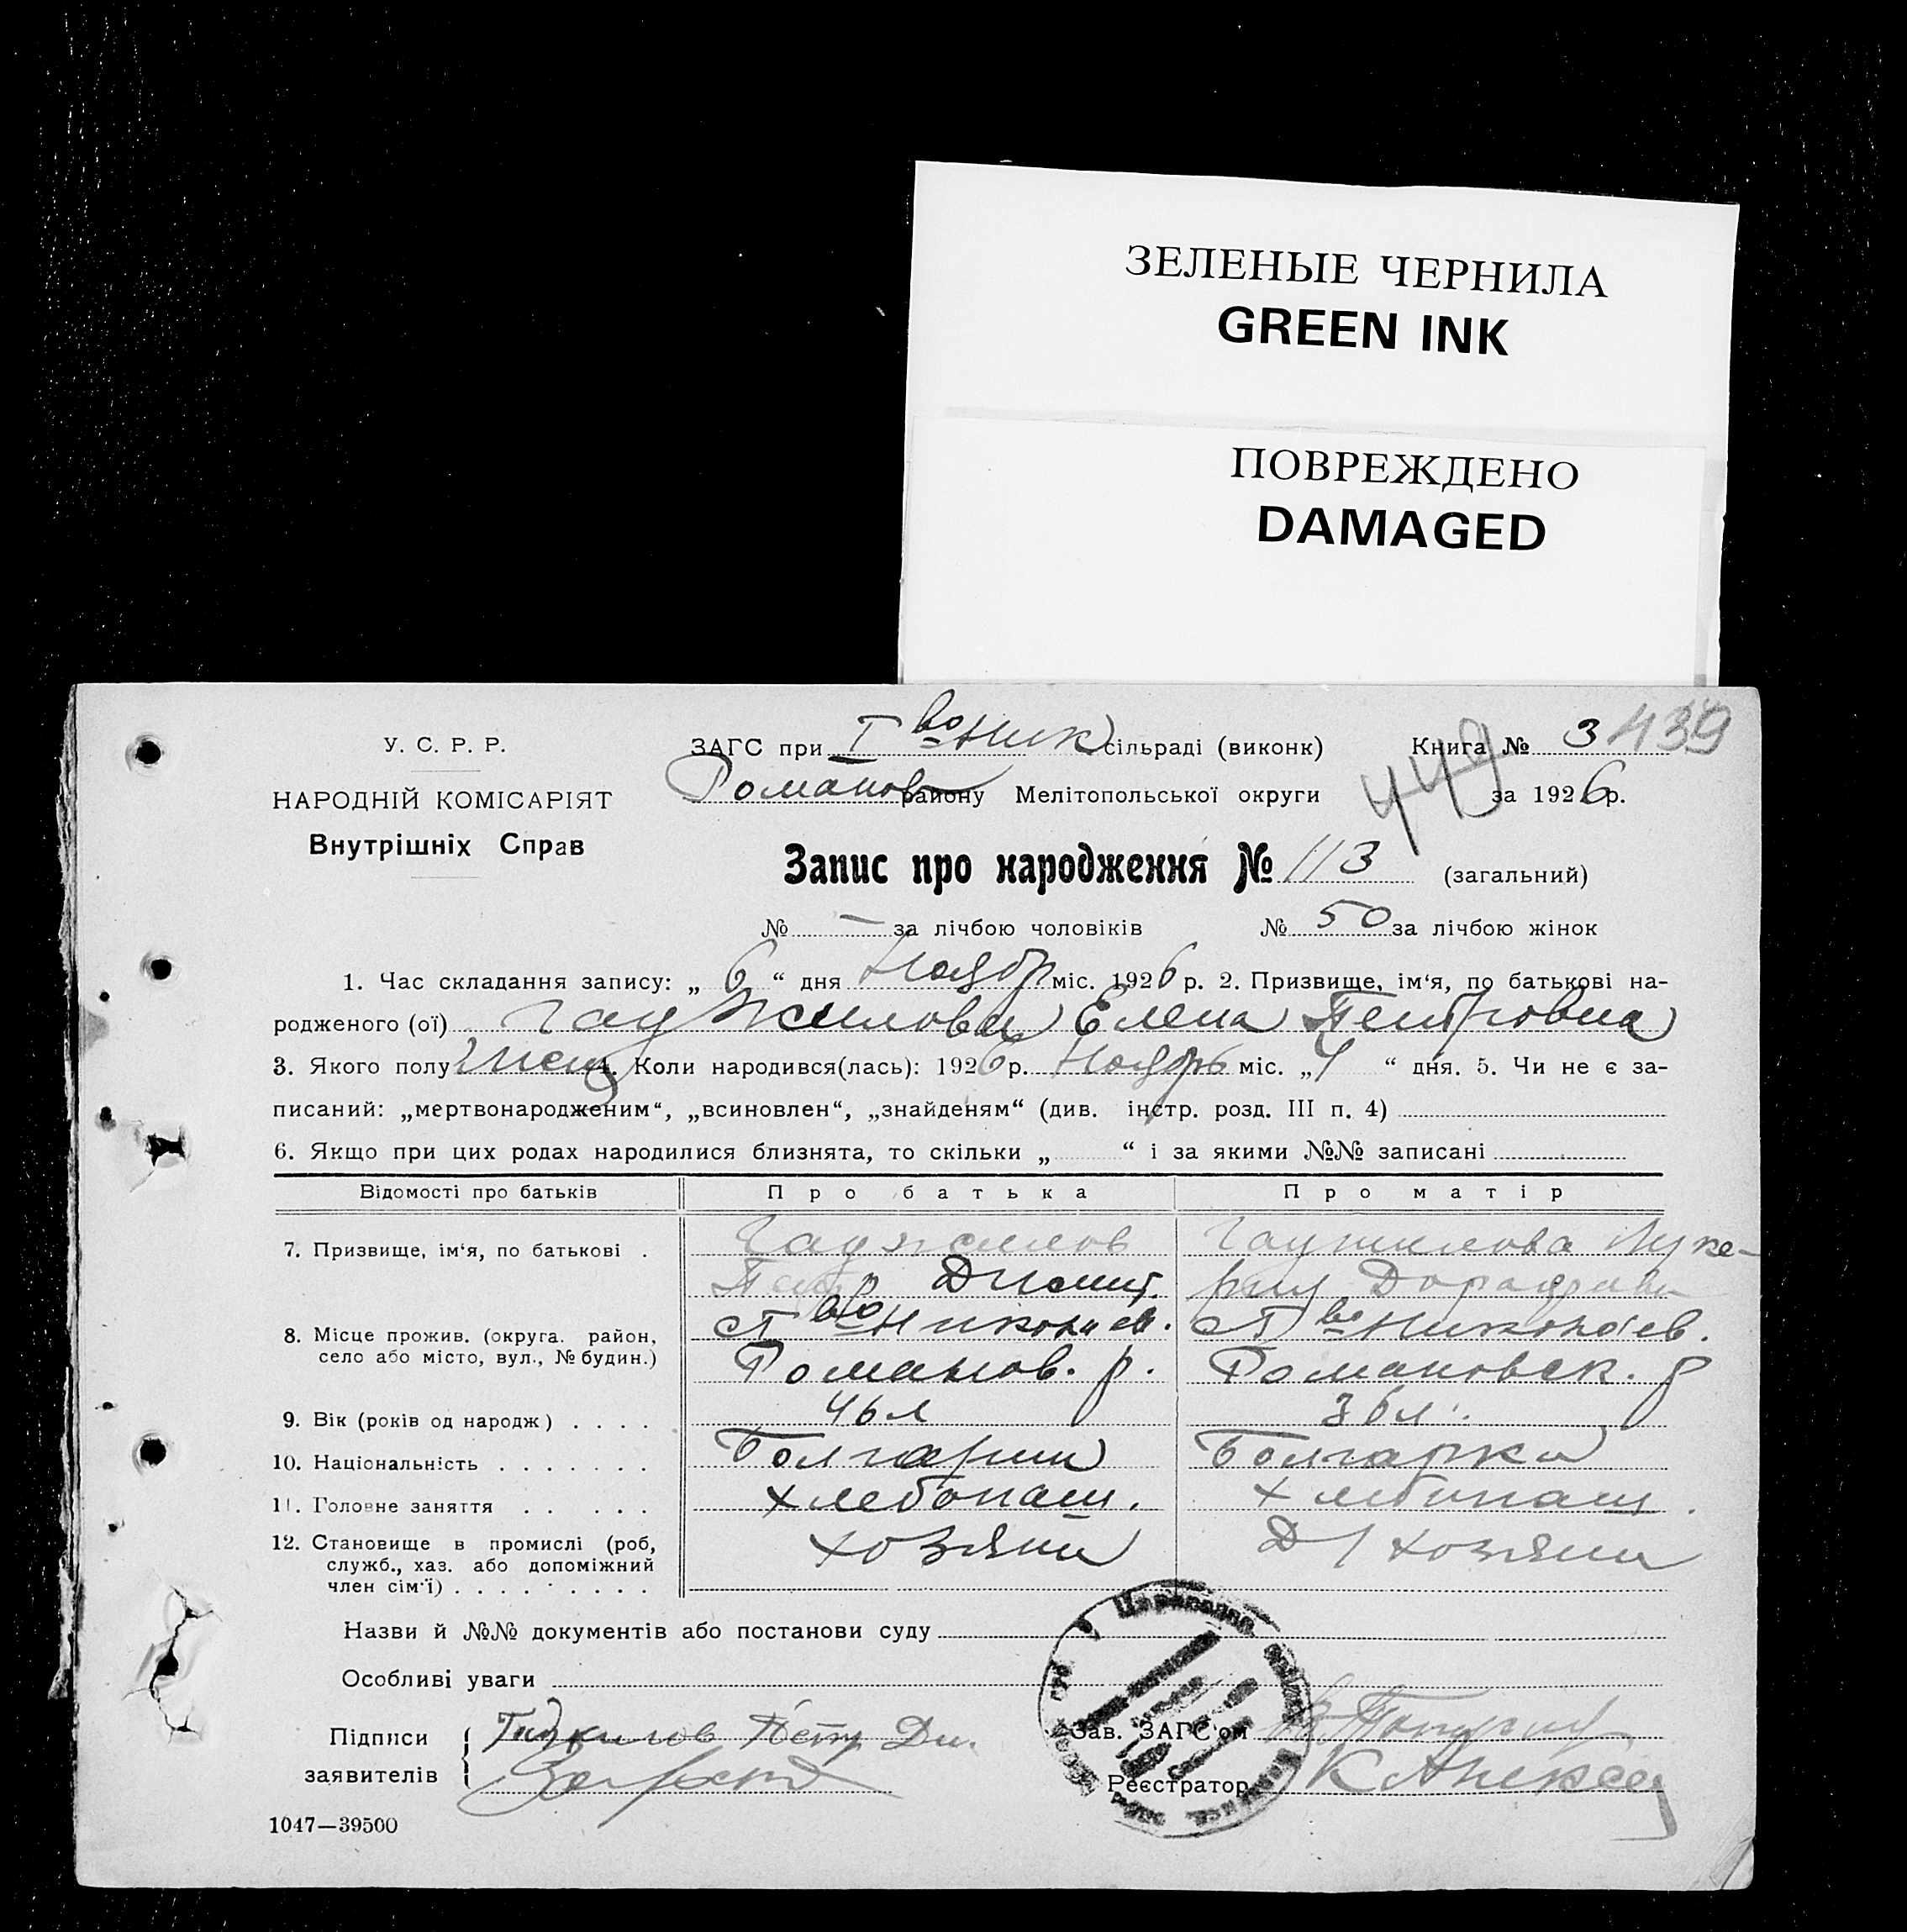 ЗЕЛЕНЫЕ ЧЕРНИЛА
GREEN INK
ПОВРЕЖДЕНО
DAMAGED
У. С. Р. Р.
НАРОДНІЙ КОМІСАРІЯТ
Внутрішніх Справ
ЗАГС при Iво Ник сільраді (виконк) Книга № 3 439
Романов району Мелітопольської округи 449 за 1926 р.
Запис про народження № 113 (загальний)
№ — за лічбою чоловіків № 50 за лічбою жінок
1. Час складання запису: „ 6 “ дня Ноябр міс. 1926 р. 2. Призвище, ім'я, по батькові на-
родженого (ої) Гаджилова Елена Петровна
3. Якого полу жен 4. Коли народився(лась): 1926 р. Ноябрь міс. „ 4 “ дня. 5. Чи не є за-
писаний: „мертвонародженим“, „всиновлен“, „знайденям“ (див. інстр. розд. III п. 4)
6. Якщо при цих родах народилися близнята, то скільки „ “ і за якими №№ записані
Відомості про батьків Про батька Про матір
7. Призвище, ім'я, по батькові . Гаджилов Гаджилова Луке-
Петр Дмит. рия
8. Місце прожив. (округа. район, Iво Николаев. Iво Николаев.
село або місто, вул., № будин.) Романов. р. Романовск. р
9. Вік (років од народж) . . . . 46 л 36 л.
10. Національність . . . . . . . Болгарин Болгарка
11. Головне заняття . . . . . Хлебопаш. Хлебопаш.
12. Становище в промислі (роб, хозяин Д/хозяин
служб., хаз. або допоміжний
член сім'ї) . . . . . . . . .
Назви й №№ документів або постанови суду
Особливі уваги
Підписи Гаджилов Петр Дм. Зав. ЗАГС'ом
заявителів Реєстратор К Алексеев
1047—39500